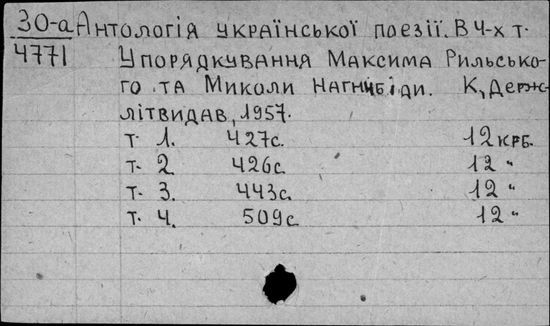 30-а Антологія української поезії. В 4-х т.
4771 Упорядкування Максима Рильсько-
го та Миколи Нагнибіди. К, Держ-
літвидав, 1957.
т. 1. 427с. 12 крб.
т. 2 426с. 12 "
т. 3. 443с. 12 "
т. 4. 509с. 12 "